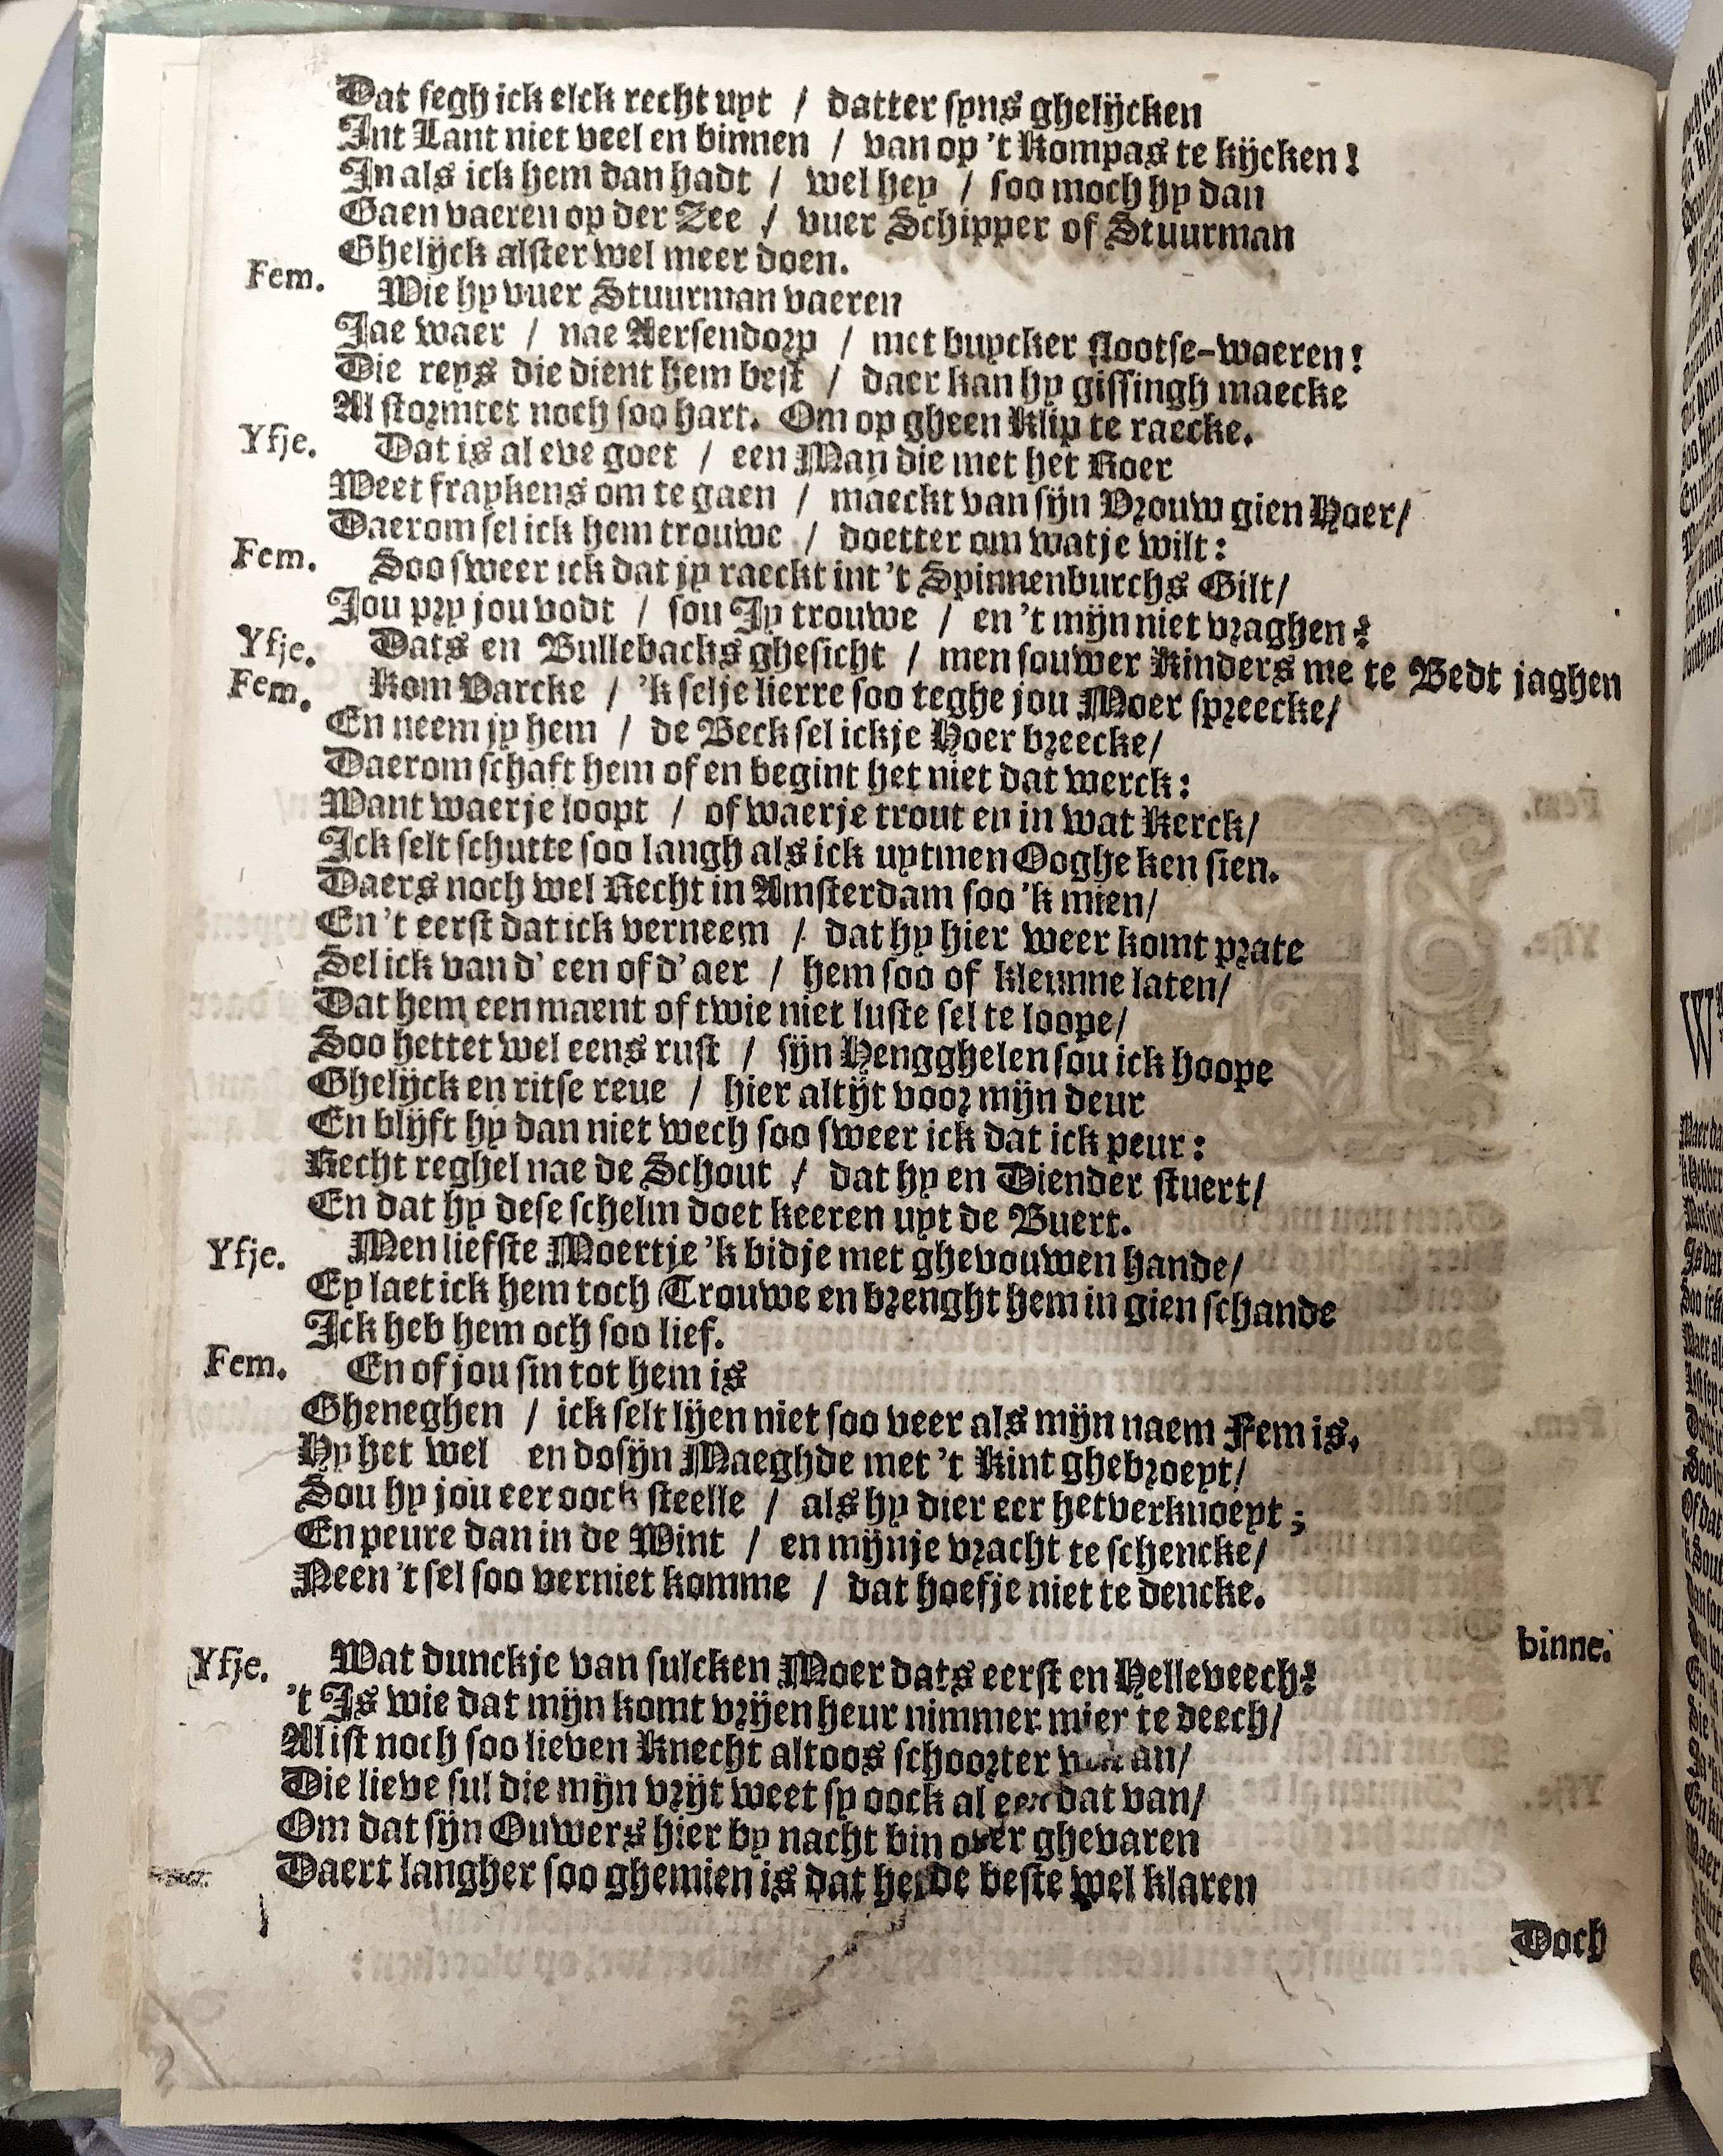 Dat segh ick elck recht uyt / datter syns ghelijcken
Int Lant niet veel en binnen / van op 't Kompas te kijcken!
In als ick hem dan hadt / wel hey / soo moch hy dan
Gaen vaeren op der Zee / vuer Schipper of Stuurman
Ghelijck alster wel meer doen.
Fem. Wie hy vuer Stuurman vaeren
Jae waer / nae Aersendorp / met buycker slootse-waeren!
Die reys die dient hem best / daer kan hy gissingh maecke
Al stormtet noch soo hart. Om op gheen Klip te raecke.
Yfje. Dat is al eve goet / een Man die met het Roer
Weet fraykens om te gaen / maeckt van sijn Vrouw gien Hoer/
Daerom sel ick hem trouwe / doetter om watje wilt:
Fem. Soo sweer ick dat jy raeckt int 't Spinnenburchs Gilt/
Jou pry jou vodt / sou Jy trouwe / en 't mijn niet vraghen?
Yfje. Dats en Bullebacks ghesicht / men souwer Kinders me te Bedt jaghen
Fem. Kom Varcke / 'k selje lierre soo teghe jou Moer spreecke/
En neem jy hem / de Beck sel ickje Hoer breecke/
Daerom schaft hem of en begint het niet dat werck:
Want waerje loopt / of waerje trout en in wat Kerck/
Ick selt schutte soo langh als ick uytmen Ooghe ken sien.
Daers noch wel Recht in Amsterdam soo 'k mien/
En 't eerst dat ick verneem / dat hy hier weer komt prate
Sel ick van d' een of d' aer / hem soo of kleunne laten/
Dat hem een maent of twie niet luste sel te loope/
Soo hettet wel eens rust / sijn Hengghelen sou ick hoope
Ghelijck en ritse reue / hier altijt voor mijn deur
En blijft hy dan niet wech soo sweer ick dat ick peur:
Recht reghel nae de Schout / dat hy en Diender stuert/
En dat hy dese schelm doet keeren uyt de Buert.
Yfje. Men liefste Moertje 'k bidje met ghevouwen hande/
Ey laet ick hem toch Trouwe en brenght hem in gien schande
Ick heb hem och soo lief.
Fem. En of jou sin tot hem is
Gheneghen / ick selt lijen niet soo veer als mijn naem Fem is.
Hy het wel en dosijn Maeghde met 't Kint ghebroeyt/
Sou hy jou eer oock steelle / als hy dier eer het verknoeyt;
En peure dan in de Wint / en mijnje vracht te schencke/
Neen 't sel soo verniet komme / dat hoefje niet te dencke.
binne.
Yfje. Wat dunckje van sulcken Moer dats eerst en Helleveech?
't Is wie dat mijn komt vrijen heur nimmer mier te deech/
Al ist noch soo lieven Knecht altoos schoorter an/
Die lieve sul die mijn vrijt weet sy oock al een dat van/
Om dat sijn Ouwers hier by nacht bin over ghevaren
Daert langher soo ghemien is dat het de beste wel klaren
Doch